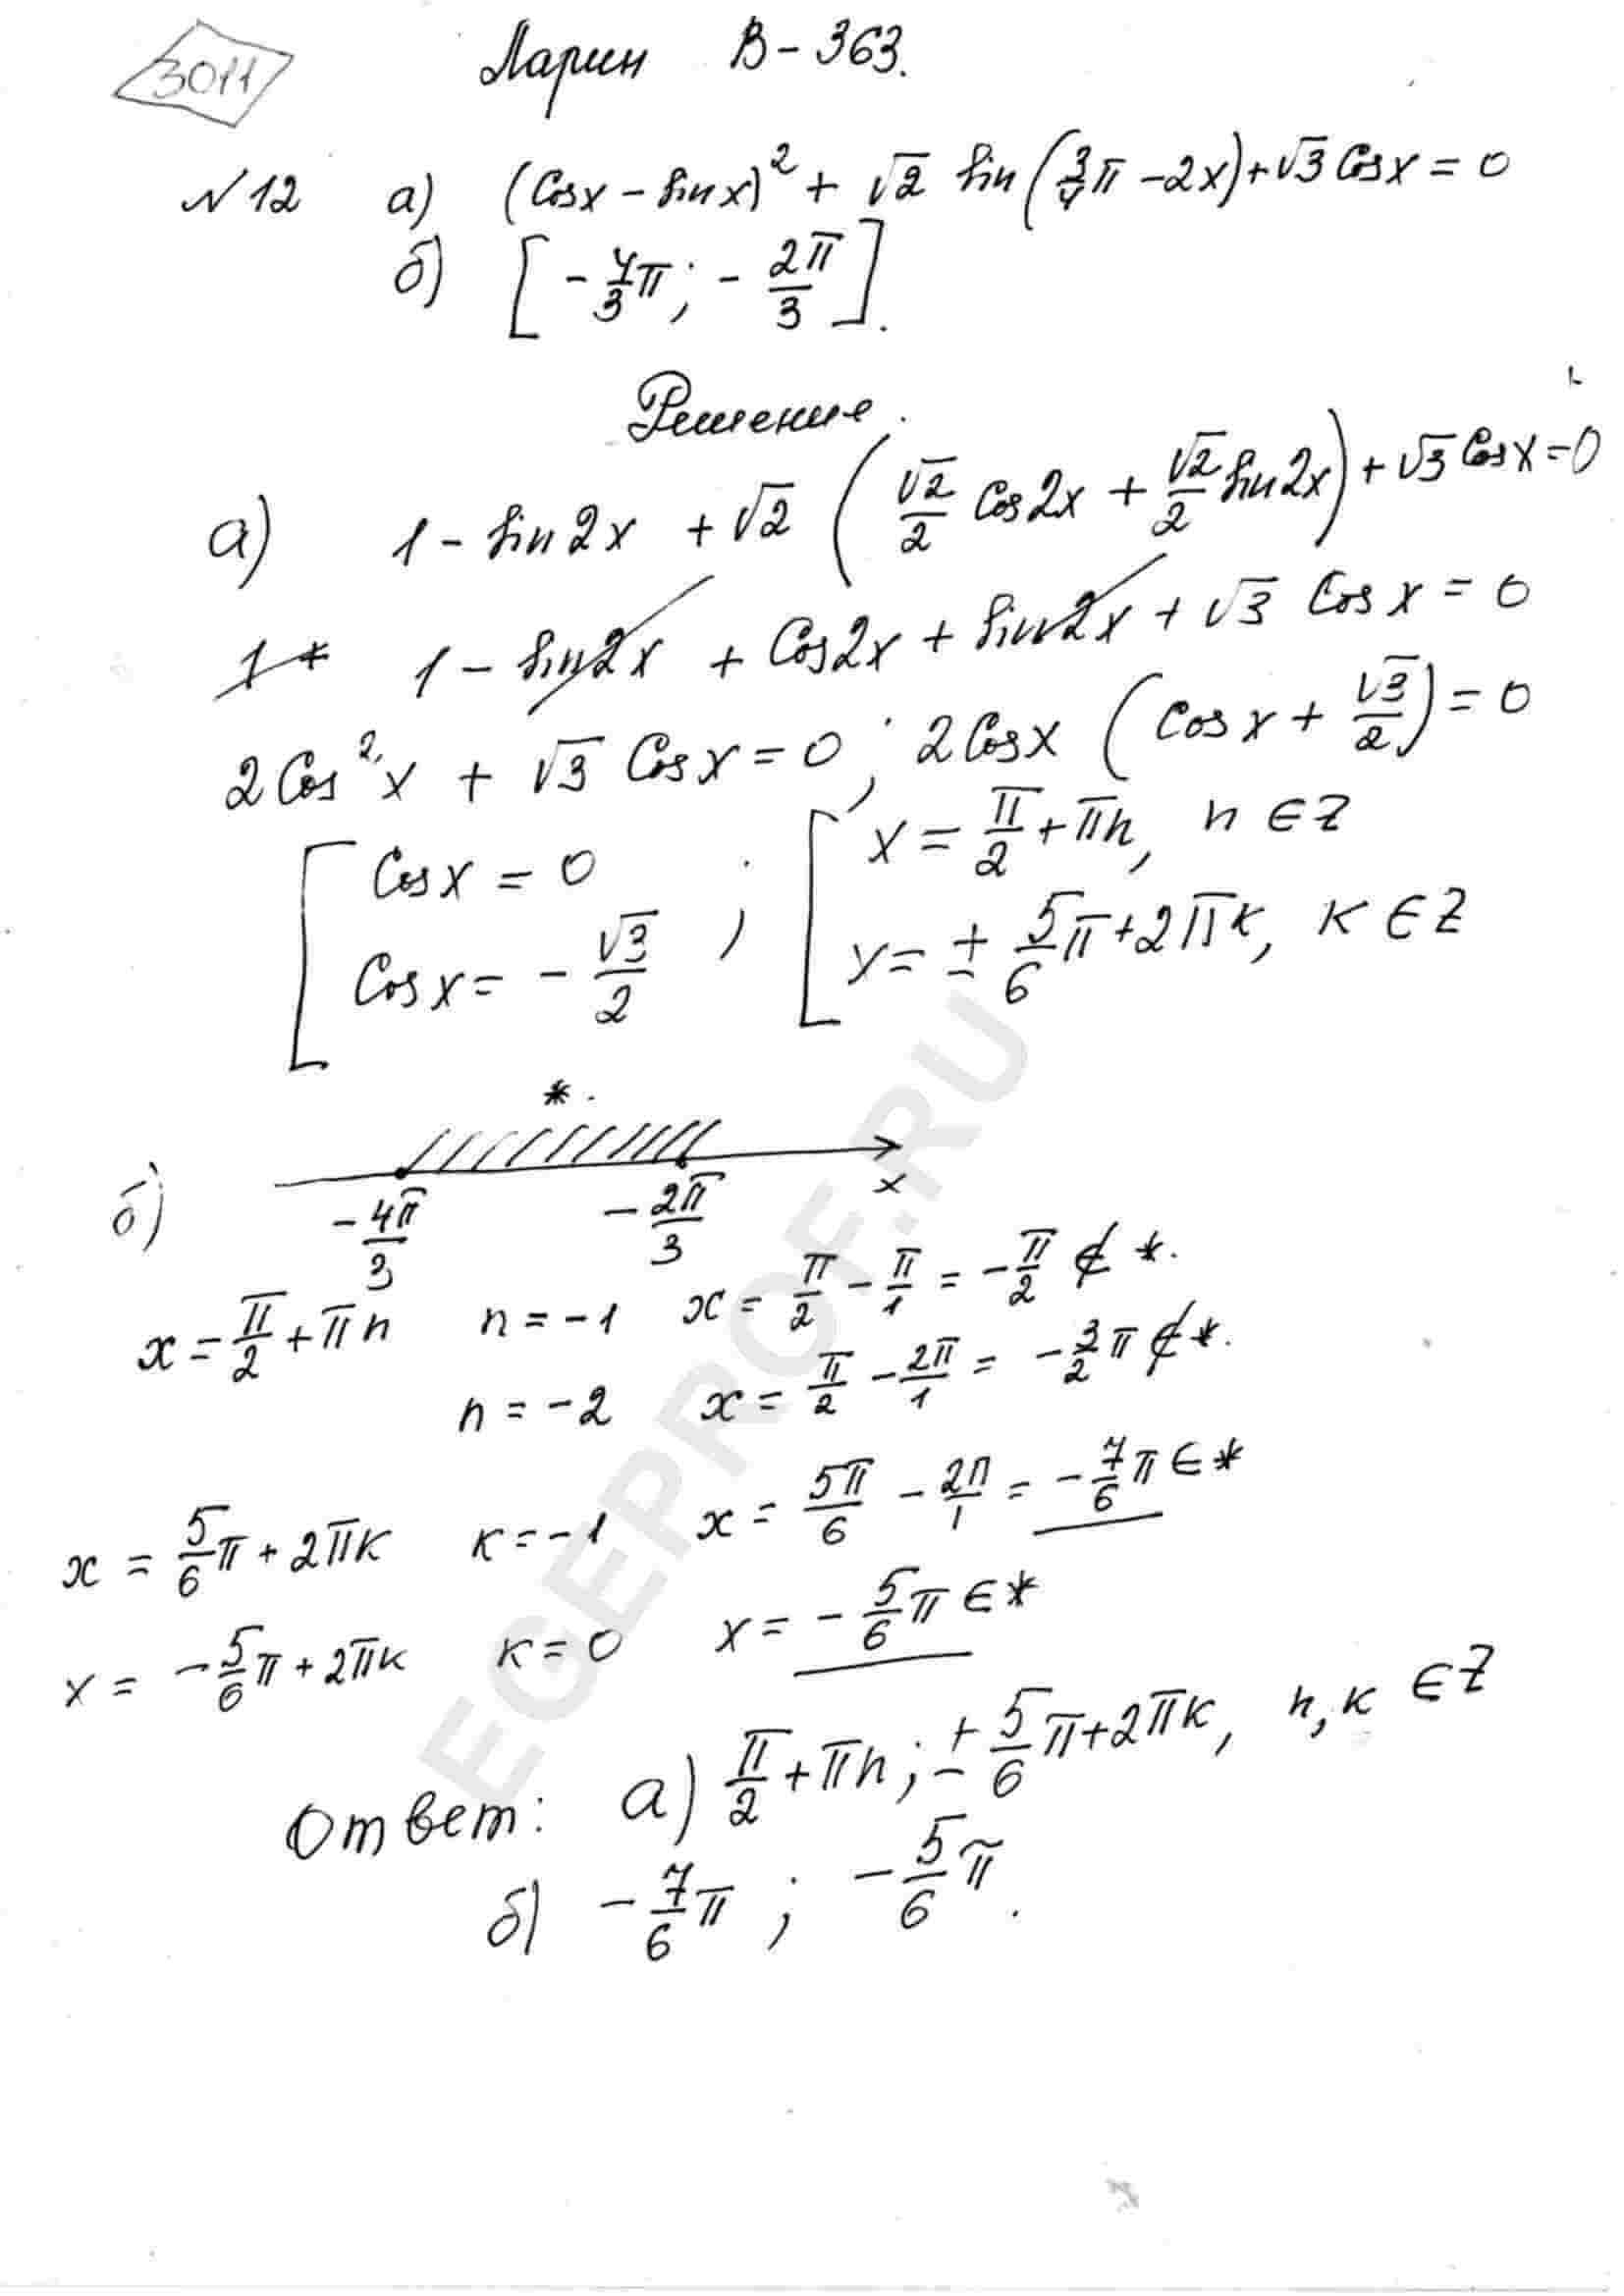 3011
Ларин В-363.
№12 а) (Cosx - sinx)² + √2 sin(3/4 π - 2x) + √3 Cosx = 0
б) [-4/3 π; -2π/3].
Решение.
а) 1 - sin2x + √2 (√2/2 Cos2x + √2/2 sin2x) + √3 Cosx = 0
1 + 1 - sin2x + Cos2x + sin2x + √3 Cosx = 0
2Cos²x + √3 Cosx = 0; 2Cosx (Cosx + √3/2) = 0
[Cosx = 0 ; [x = π/2 + πn, n ∈ Z
Cosx = -√3/2 x = ± 5/6 π + 2πк, к ∈ Z
*.
б) -4π/3 -2π/3 x
x = π/2 + πn n = -1 x = π/2 - π/1 = -π/2 ∉ *.
n = -2 x = π/2 - 2π/1 = -3/2 π ∉ *.
x = 5/6 π + 2πк к = -1 x = 5π/6 - 2π/1 = -7/6 π ∈ *
x = -5/6 π + 2πк к = 0 x = -5/6 π ∈ *
Ответ: а) π/2 + πn; ± 5/6 π + 2πк, n, к ∈ Z
б) -7/6 π; -5/6 π.
EGEPROF.RU